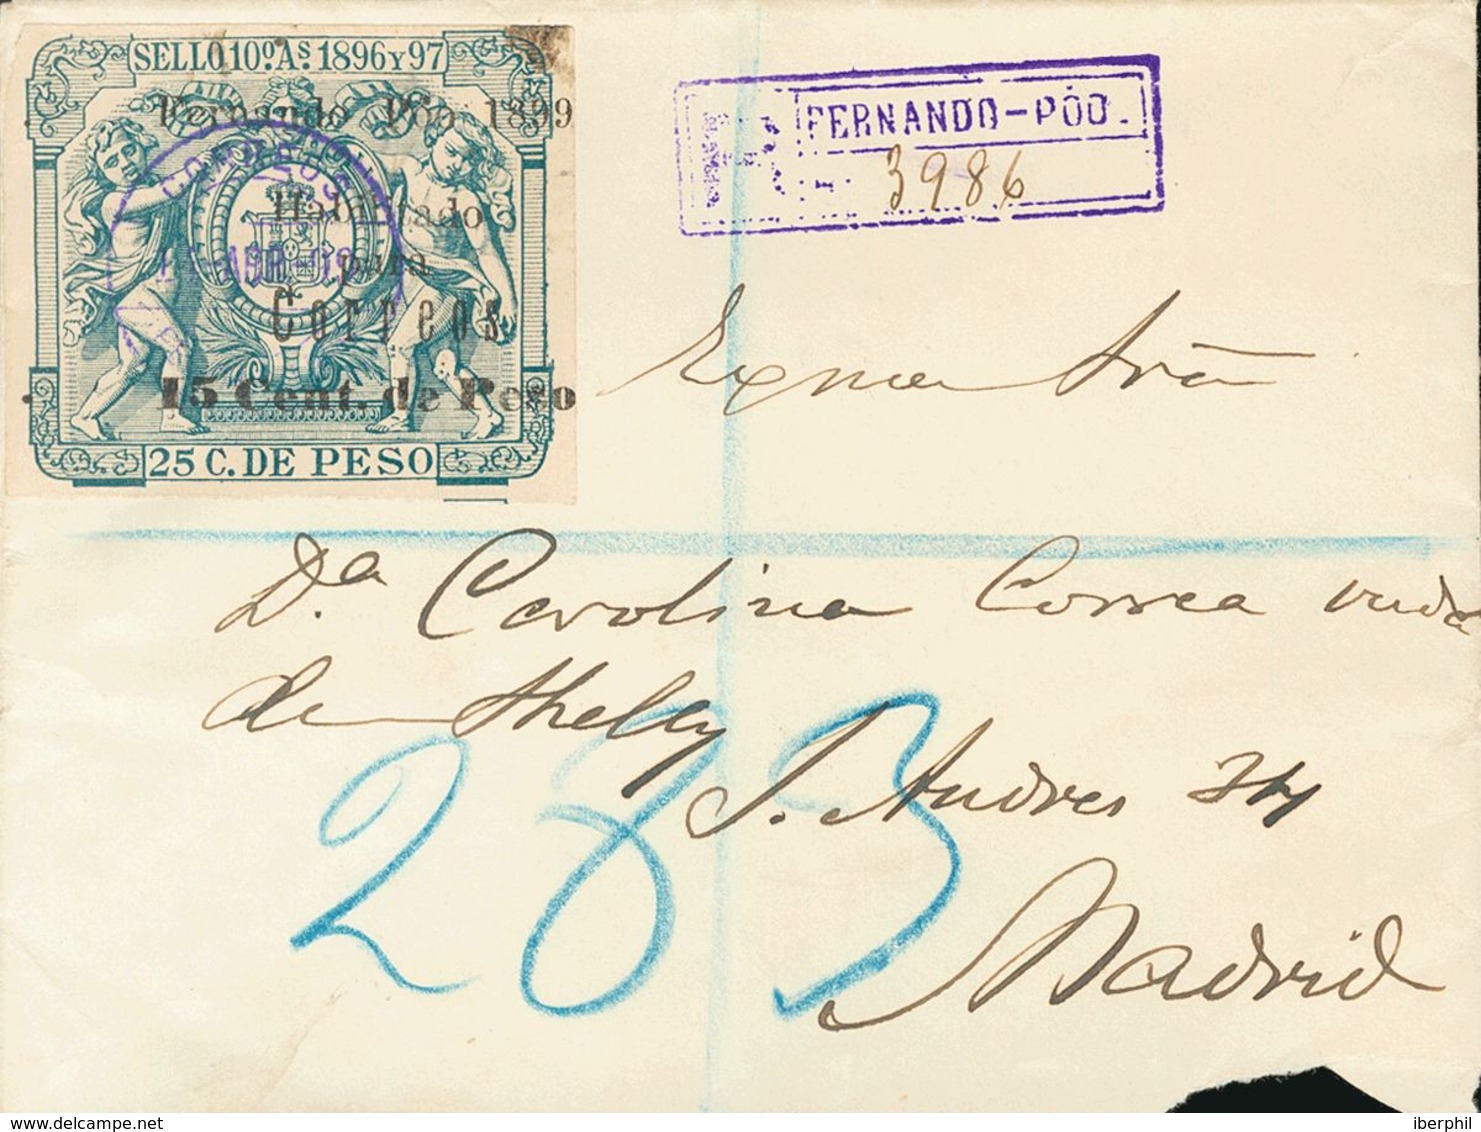 SELLO 10º. Aˢ. 1896 Y 97
Fernando Póo 1899
Habilitado
para
Correos
15 Cent. de Peso
25 C. DE PESO
CORREOS
ABR
FERNANDO-PÓO.
3986
Exma Srã
D.ª Carolina Correa viuda
de Shelly
S. Andres 34
Madrid
283
www.delcampe.net
iberphil